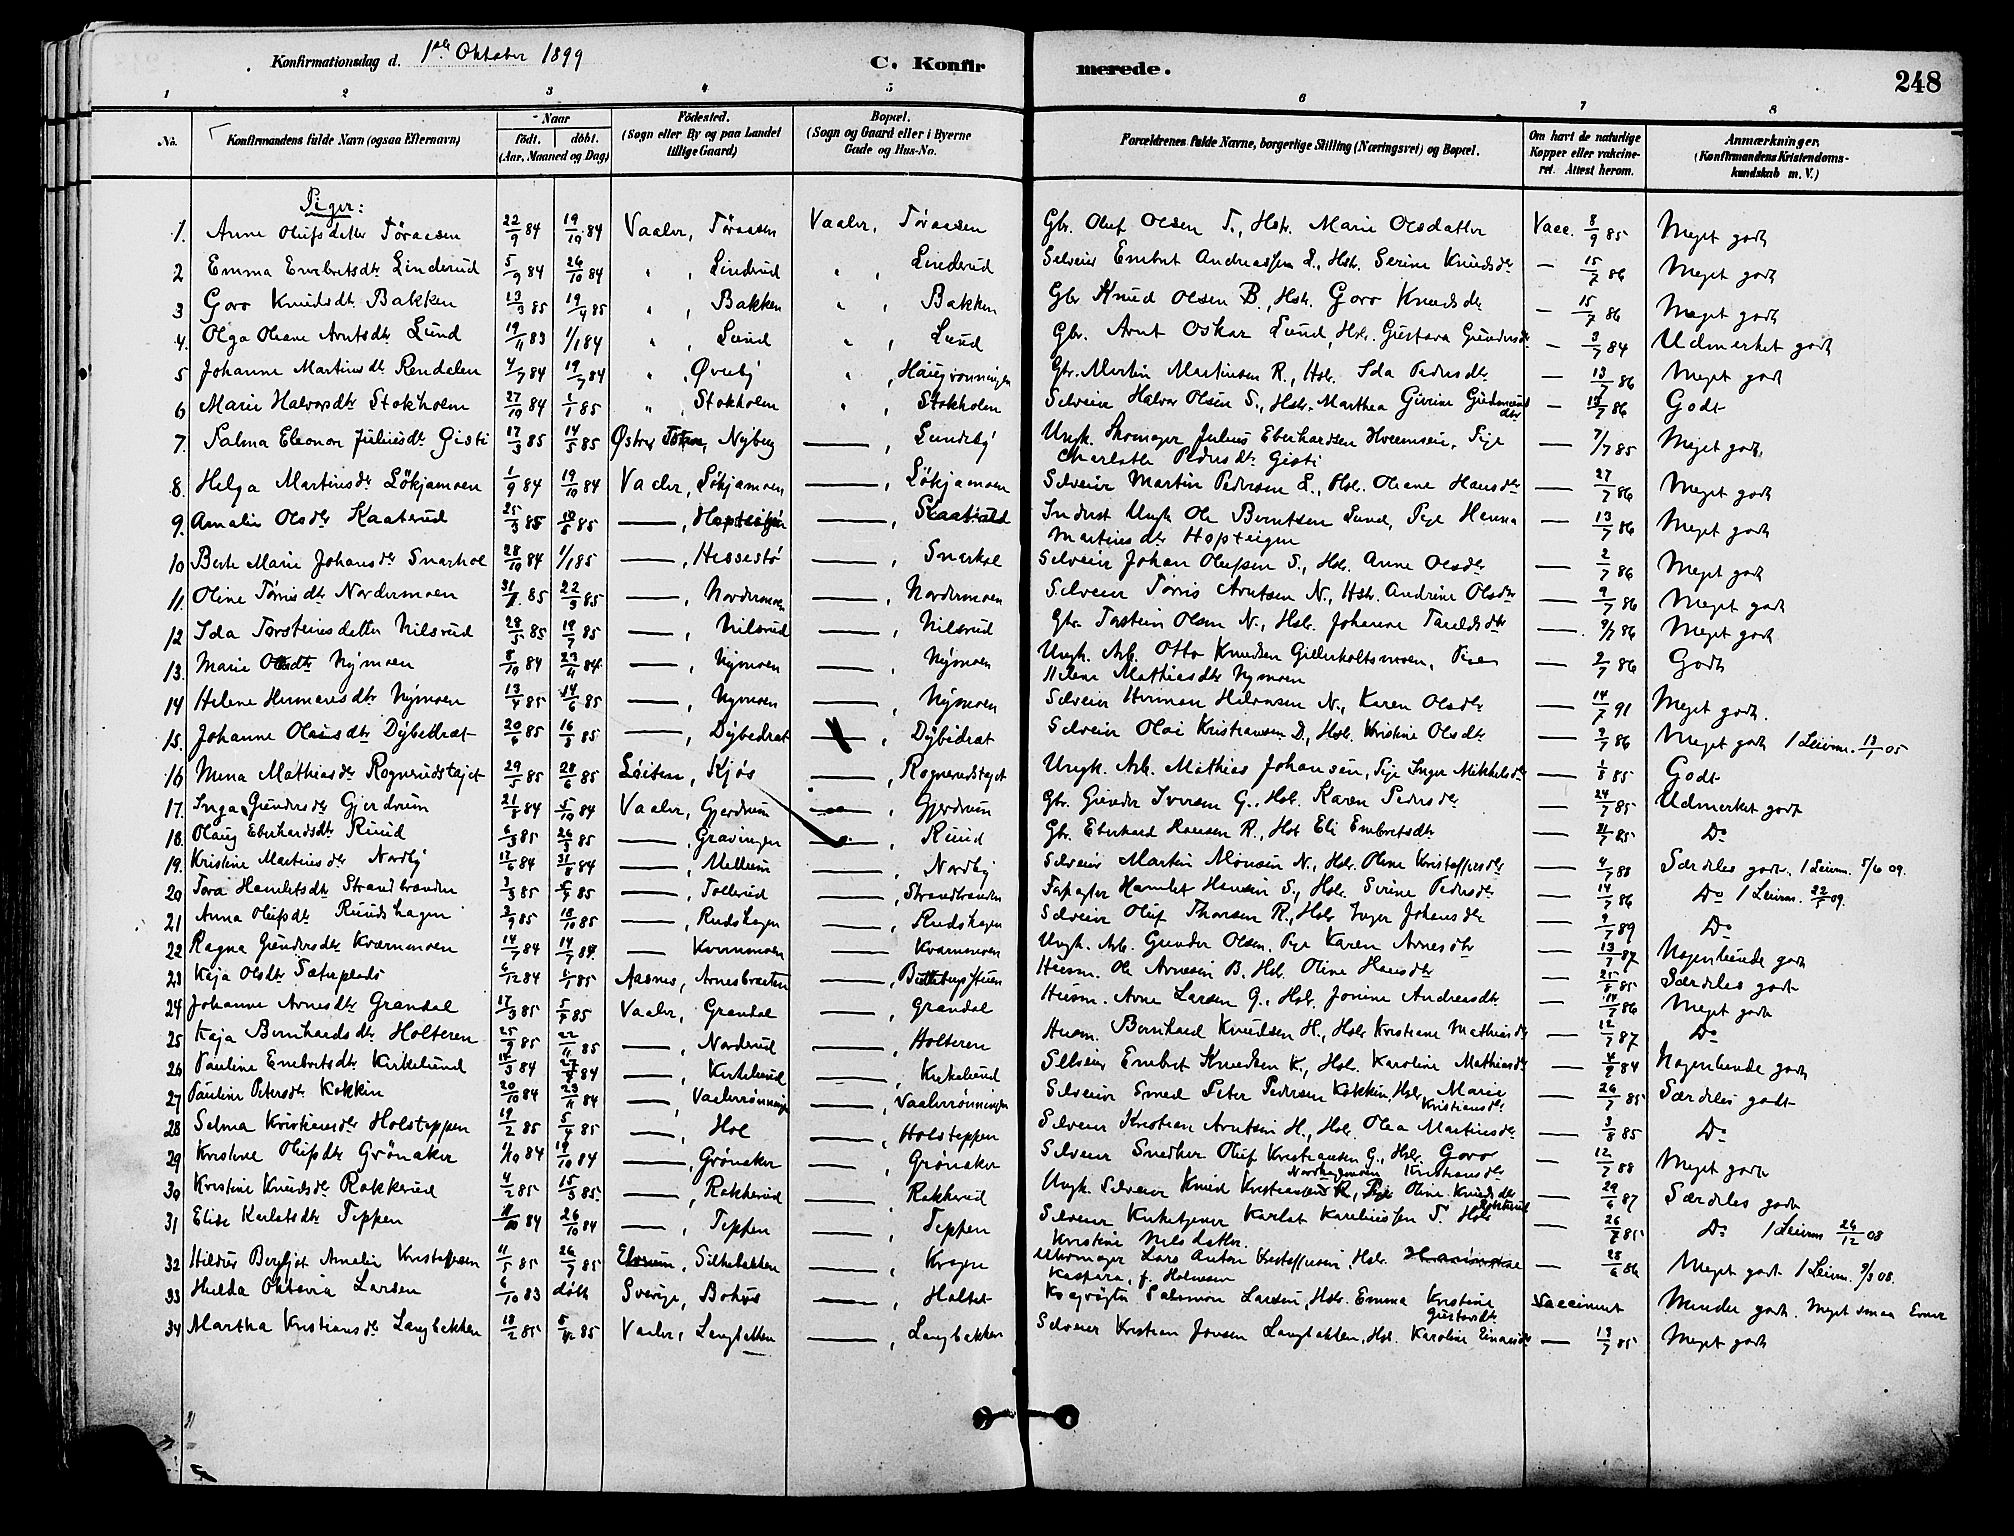 Konfirmationsdag d. 1ste Oktober 1899 C. Konfirmerede. 248
1 2 3 4 5 6 7 8
No. Konfirmandens fulde Navn (ogsaa Efternavn) Naar født. døbt. (Aar, Maaned og Dag) Fødested. (Sogn eller By og paa Landet tillige Gaard) Bopæl. (Sogn og Gaard eller i Byerne Gade og Hus-No. Forældrenes fulde Navne, borgerlige Stilling (Næringsvei) og Bopæl. Om havt de naturlige Kopper eller vakcineret. Attest herom. Anmærkninger. (Konfirmandens Kristendomskundskab m. V.)
Piger:
1. Anne Olufsdatter Tøraasen 22/9 84 19/10 84 Vaaler, Tøraasen Vaaler, Tøraasen Gbr. Oluf Olsen T., Hstr. Marie Olsdatter Vacc. 8/9 85 Meget godt
2 Emma Embretsdtr Linderud 5/9 84 26/10 84 " , Linderud " , Linderud Selveier Embret Andreassen L., Hstr. Serine Knudsdtr — 15/7 86 Meget godt
3 Goro Knudsdtr Bakken 13/3 85 19/4 85 " , Bakken " , Bakken Gbr Knud Olsen B., Hstr. Goro Knudsdtr — 15/7 86 Meget godt
4. Olga Oleane Arntsdtr Lund 19/11 83 1/1 84 " , Lund " , Lund Gbr. Arnt Oskar Lund, Hstr. Gustava Gundersdtr — 3/7 84 Udmerket godt
5 Johanne Martinsdtr Rendalen 4/7 84 19/7 84 " , Øveby " , Haugrønningen Gbr. Martin Martinsen R., Hstr. Ida Pedersdtr — 13/7 86 Meget godt
6 Marie Halvorsdtr Stokholm 27/10 84 1/1 85 " , Stokholm " , Stokholm Selveier Halvor Olsen S., Hstr. Marthea Gurine Gudmundsdtr — 13/7 86 Godt
7. Palma Eleonor Juliusdtr Gisti 17/3 85 14/5 85 Østre Toten, Nyberg — , Lundeby Ungk. Skomager Julius Eberhardsen Hveemseie, Pige Charlotte Pedersdtr Gisti — 7/7 85 Meget godt,
8. Helga Martinsdtr Løkjamoen 1/9 84 19/10 84 Vaaler, Løkjamoen — , Løkjamoen Selveier Martin Pedersen L., Hstr. Oleane Hansdtr — 27/7 86 Meget godt
9. Amalie Olsdtr Kaaterud 25/3 85 10/5 85 — , — , Kaaterud Inderst Ungk Ole Berntsen Lund, Pige Henna Martinsdtr Hopteigen — 13/7 86 Meget godt
10 Berte Marie Johansdtr Snarhol 28/10 84 1/1 85 — , Hessestø — , Snarhol Selveier Johan Olufsen S., Hstr. Anne Olsdtr — 2/7 86 Meget godt
11. Oline Tørrisdtr Nordermoen 31/1 85 22/3 85 — , Nordermoen — , Nordermoen Selveier Tørris Arntsen N., Hstr. Andrine Olsdtr — 9/7 86 Meget godt
12 Ida Torsteinsdatter Nilsrud 28/5 85 19/7 85 — , Nilsrud — , Nilsrud Gbr. Torstein Olsen N., Hstr. Johanne — 9/7 86 Meget godt
13. Marie Ottosdtr Nymoen 8/10 84 23/11 84 — , Nymoen — , Nymoen Ungk. Arb. Otto Knudsen Gillerholtsmoen, Pige Helene Mathiasdtr Nymoen — 2/7 86 Godt
14 Helene Hermansdtr Nymoen 13/4 85 14/6 85 — , Nymoen — , Nymoen Selveier Herman Halvorsen N., Karen Olsdtr — 14/7 91 Meget godt.
15. Johanne Olaisdtr Dybedræt 20/6 85 16/8 85 — , Dybedræt — , Dybedræt Selveier Olai Kristiansen D., Hstr. Kristine Olsdtr — 3/7 86 Meget godt 1 Leierm. 13/1 05
16 Mina Mathiasdtr Rognerudstøjet 29/5 85 28/6 85 Løiten, Kjøs — , Rognerudstøjet Ungk. Arb. Mathias Johansen, Pige Inger Mikkelsdtr — 1/8 85 Godt
17. Inga Gundersdtr Gjerdrum 21/8 84 5/10 84 Vaaler, Gjerdrum — , Gjerdrum Gbr. Gunder Iversen G., Hstr. Karen Pedersdtr — 24/7 85 Udmerket godt
18. Olaug Eberhardsdtr Ruud 6/3 85 26/3 85 — , Gravingen — , Ruud Gbr. Eberhard Hansen R., Hstr Eli Embretsdtr — 21/7 85 Do
19. Kristine Martinsdtr Nordby 13/6 84 31/8 84 — , Mellum — , Nordby Selveier Martin Monsen N., Hstr. Oline Kristoffersdtr — 4/7 88 Særdeles godt. 1 Leierm. 5/6 09.
20 Tora Hamletsdtr Strandbraaten 3/3 85 5/4 85 — , Tollerud — , Strandbraaten Hamlet Hansen S., Hstr. Serine Pedersdtr — 14/7 86 Do 1 Leierm. 22/5 09.
21 Anna Olufsdtr Ruudshagen 3/9 85 18/10 85 — , Rudshagen — , Rudshagen Selveier Oluf Thorsen R., Hstr Inger Johansdtr — 9/7 89 Do
22 Ragna Gundersdtr Kværnmoen 14/7 84 14/7 84 — Kvernmoen — Kværnmoen Ungk. Arb. Gunder Olsen, Pige Karen Arnesdtr — 13/7 87 Nogenlunde godt
23 Kaja Olsdtr Sæterplads 6/12 84 6/1 85 Aasnes, Arnesbraaten — , Husm. Ole Arnesen B. Hstr. Oline Hansdtr — 25/8 85 Særdeles godt
24 Johanne Arnesdtr Grøndal 17/3 85 5/4 85 Vaaler, Grøndal — , Grøndal Husm. Arne Larsen G., Hstr. Jonine Andreasdtr — 14/7 86 Meget godt
25 Kaja Bernhardsdtr Holteren 25/9 85 22/11 85 — , Norderud — , Holteren Husm. Bernhard Knudsen H., Hstr Kristiane Mathiasdtr — 12/7 87 Do
26 Pauline Embretsdtr Kirkelund 14/3 84 27/4 84 — , Kirkelund — , Kirkelund Selveier Embret Knudsen K., Hstr. Karoline Mathiasdtr — 4/9 84 Nogenlunde godt
27 Pauline Petersdtr Kokkin 20/10 84 23/11 84 — , Vaalerrønningen — , Vaalerrønningen Selveier Smed Peter Pedersen Kokkin, Hstr. Marie Kristiansdtr — 26/7 85 Særdeles godt
28 Selma Kristiansdtr Holsteppen 19/2 85 5/4 85 — , Hol — , Holsteppen Selveier Kristian Arntsen H., Hstr. Olea Martinsdtr — 3/8 85 Do
29 Kristine Olufsdtr Grønaker 1/10 84 19/10 84 — , Grønaker — , Grønaker Selveier Snedker Oluf Kristiansen G., Hstr. Goro Kristiansdtr — 12/7 88 Meget godt
30 Kristine Knudsdtr Rakkerud 4/2 85 15/3 85 — , Rakkerud — , Rakkerud Ungk. Selveier Knud Kristiansen R., Pige Oline Knudsdtr — 29/6 87 Særdeles godt
31 Elise Karlotsdtr Teppen 11/10 84 26/10 84 — , Teppen — , Teppen Selveier Kirketjener Karlot Kareliussen T. Hstr Kristine Nilsdatter — 26/7 85 Do 1 Leierm 26/12 08
32 Hildur Bergljot Amalie Kristoffersen 11/5 85 26/7 85 Elverum, Silkebækken — , Uhrmager Lars Anton Kristoffersen, Hstr. Kaspara, f. Holmsen — 28/6 86 Meget godt 1 Leierm. 9/3 08.
33 Hulda Oktavia Larsen 6/10 83 døbt Sverige, Bohus — , Holtet Salomon Larsen, Hstr. Emma Kristine Gustavsdtr Vaccinert Mindre godt. Meget smaa Evner
34 Martha Kristiansdtr Langbakken 18/2 85 5/4 85 Vaaler, Langbakken — , Langbakken Selveier Kristian Jonsen Langbakken, Hstr. Karoline Einarsdtr — 13/7 85 Meget godt